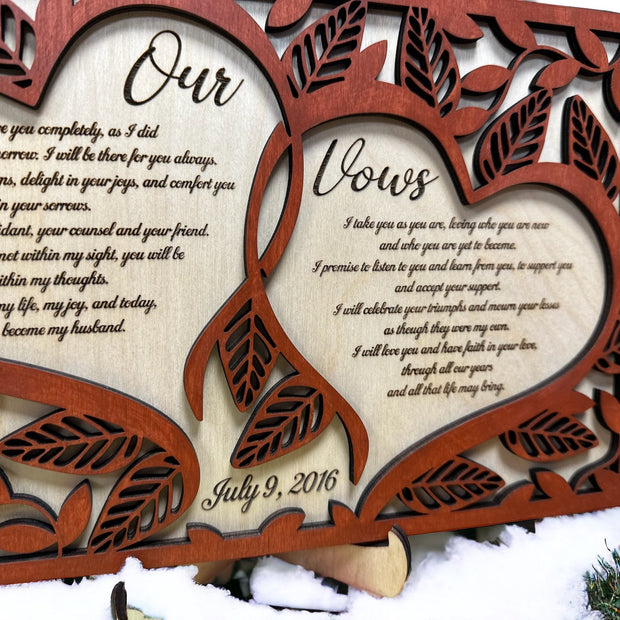 Our
you completely, as I did
I will be there for you always.
delight in your joys, and comfort you
in your sorrows.
your counsel and your friend.
not within my sight, you will be
within my thoughts.
my life, my joy, and today,
become my husband.
Vows
I take you as you are, loving who you are now
and who you are yet to become.
I promise to listen to you and learn from you, to support you
and accept your support.
I will celebrate your triumphs and mourn your losses
as though they were my own.
I will love you and have faith in your love,
through all our years
and all that life may bring.
July 9, 2016